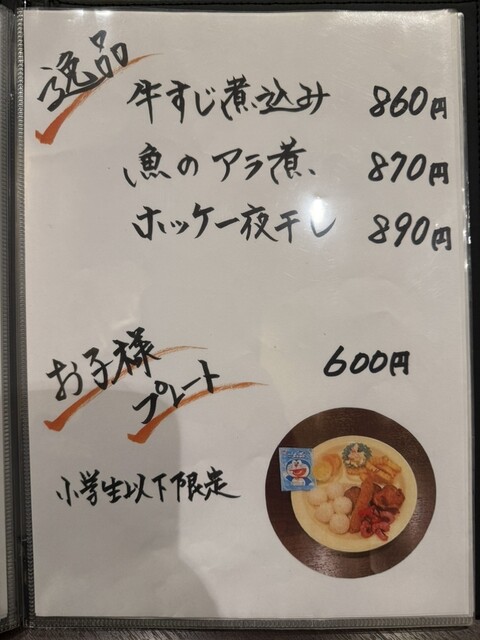 逸品
牛すじ煮込み 860円
魚のアラ煮 870円
ホッケ一夜干し 890円
お子様
プレート
600円
小学生以下限定